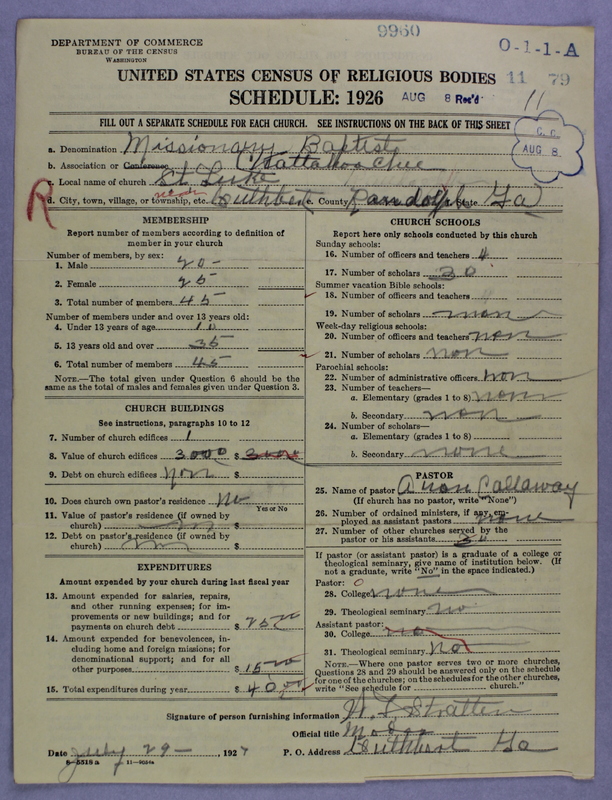 9960
DEPARTMENT OF COMMERCE
BUREAU OF THE CENSUS
WASHINGTON
O-1-1-A
UNITED STATES CENSUS OF RELIGIOUS BODIES
11 79
SCHEDULE: 1926
AUG 8 Rec'd
11
FILL OUT A SEPARATE SCHEDULE FOR EACH CHURCH. SEE INSTRUCTIONS ON THE BACK OF THIS SHEET
C. C.
AUG. 8
a. Denomination Missionary Baptist
b. Association or Conference Chattahoochee
c. Local name of church St. Luke
R
d. City, town, village, or township, etc. Cuthbert e. County Randolph State Ga
MEMBERSHIP
Report number of members according to definition of
member in your church
Number of members, by sex:
1. Male 20
2. Female 25
3. Total number of members 45
Number of members under and over 13 years old:
4. Under 13 years of age 10
5. 13 years old and over 35
6. Total number of members 45
NOTE.—The total given under Question 6 should be the
same as the total of males and females given under Question 3.
CHURCH BUILDINGS
See instructions, paragraphs 10 to 12
7. Number of church edifices 1
8. Value of church edifices 3000 $ 3000
9. Debt on church edifices non $
10. Does church own pastor's residence No
Yes or No
11. Value of pastor's residence (if owned by
church) $
12. Debt on pastor's residence (if owned by
church) $
EXPENDITURES
Amount expended by your church during last fiscal year
13. Amount expended for salaries, repairs,
and other running expenses; for im-
provements or new buildings; and for
payments on church debt $ 25 00
14. Amount expended for benevolences, in-
cluding home and foreign missions; for
denominational support; and for all
other purposes $ 15 00
15. Total expenditures during year $ 40 00
CHURCH SCHOOLS
Report here only schools conducted by this church
Sunday schools:
16. Number of officers and teachers 4
17. Number of scholars 30
Summer vacation Bible schools:
18. Number of officers and teachers
19. Number of scholars none
Week-day religious schools:
20. Number of officers and teachers non
21. Number of scholars non
Parochial schools:
22. Number of administrative officers non
23. Number of teachers—
a. Elementary (grades 1 to 8) none
b. Secondary non
24. Number of scholars—
a. Elementary (grades 1 to 8)
b. Secondary none
PASTOR
25. Name of pastor Callaway
(If church has no pastor, write "None")
26. Number of ordained ministers, if any, em-
ployed as assistant pastors none
27. Number of other churches served by the
pastor or his assistants
If pastor (or assistant pastor) is a graduate of a college or
theological seminary, give name of institution below. (If
not a graduate, write "No" in the space indicated.)
Pastor: 0
28. College none
29. Theological seminary no
Assistant pastor:
30. College no
31. Theological seminary No
NOTE.—Where one pastor serves two or more churches,
Questions 28 and 29 should be answered only on the schedule
for one of the churches; on the schedules for the other churches,
write "See schedule for church."
Signature of person furnishing information Stratten
Official title
Date July 29 — , 1927 P. O. Address Cuthbert Ga
8—5518a 11—9054a